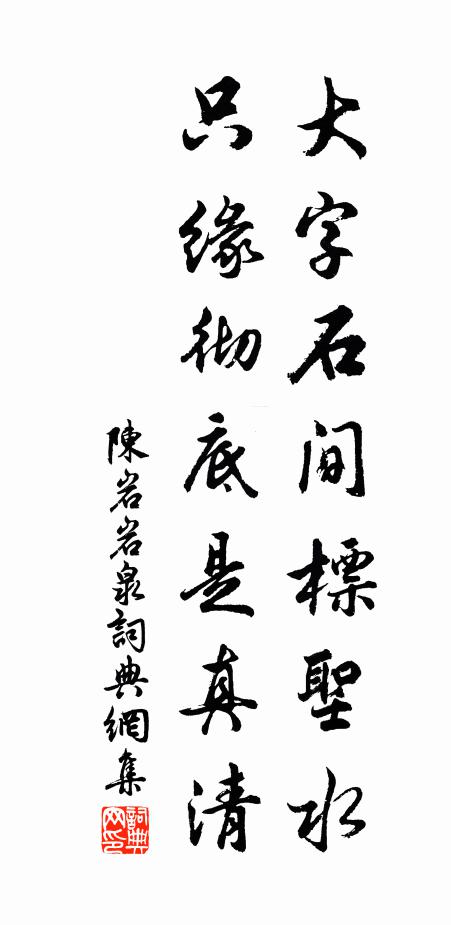 大字石间標聖水
只缘彻底是真清
陳岩岩泉詞典網集
詞典网印